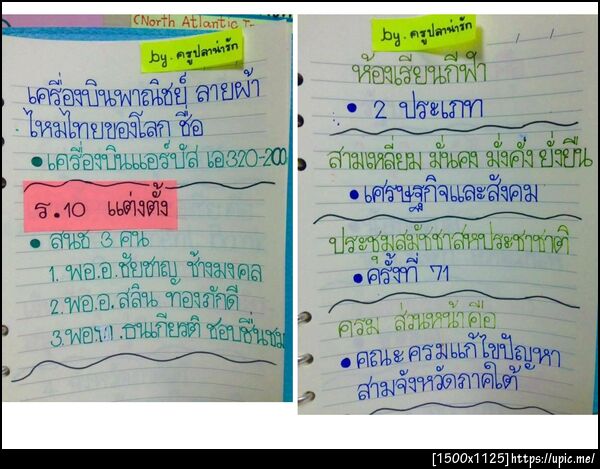 (North Atlantic T
by. ครูปลาน่ารัก
เครื่องบินพาณิชย์ ลายผ้า
ไหมไทยของโลก ชื่อ
• เครื่องบินแอร์บัส เอ320-200
ร.10 แต่งตั้ง
• สนช 3 คน
1. พอ.อ. ชัยชาญ ช้างมงคล
2. พอ.อ. สสิน ทองภักดี
3. พอ. ธนเกียรติ ชอบชื่นชม
by. ครูปลาน่ารัก
ห้องเรียนกีฬา
• 2 ประเภท
สามเหลี่ยม มั่นคง มั่งคั่ง ยั่งยืน
• เศรษฐกิจและสังคม
ประชุมสมัชชาสหประชาชาติ
• ครั้งที่ 71
ครม ส่วนหน้าคือ
• คณะครมแก้ไขปัญหา
สามจังหวัดภาคใต้
[1500x1125]https://upic.me/